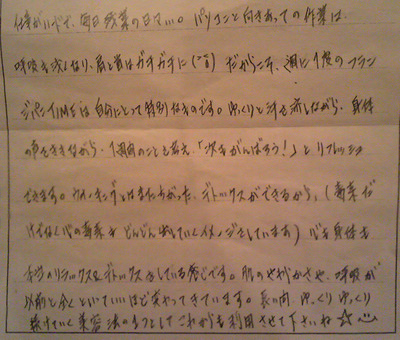 仕事がハードで、毎日残業の日々…。パソコンと向きあっての作業は、
呼吸も浅くなり、肩と首はガチガチに(>_<) だからこそ、週に1度の
TIMEは自分にとって特別なものです。ゆっくりと汗を流しながら、身体
の声をききながら、1週間のことも考え、「次もがんばろう！」とリフレッシュ
できます。ウォーキングとはまたちがった、デトックスができるから、(毒素だ
けでなく心の毒素もどんどん出していくイメージをしています) 心も身体も
リラックス&デトックスをしている感じです。肌のやわらかさや、呼吸が
以前と全くといっていいほど変わってきています。長い間、ゆっくりゆっくり
続けていく美容法の1つとしてこれからも利用させて下さいね☆